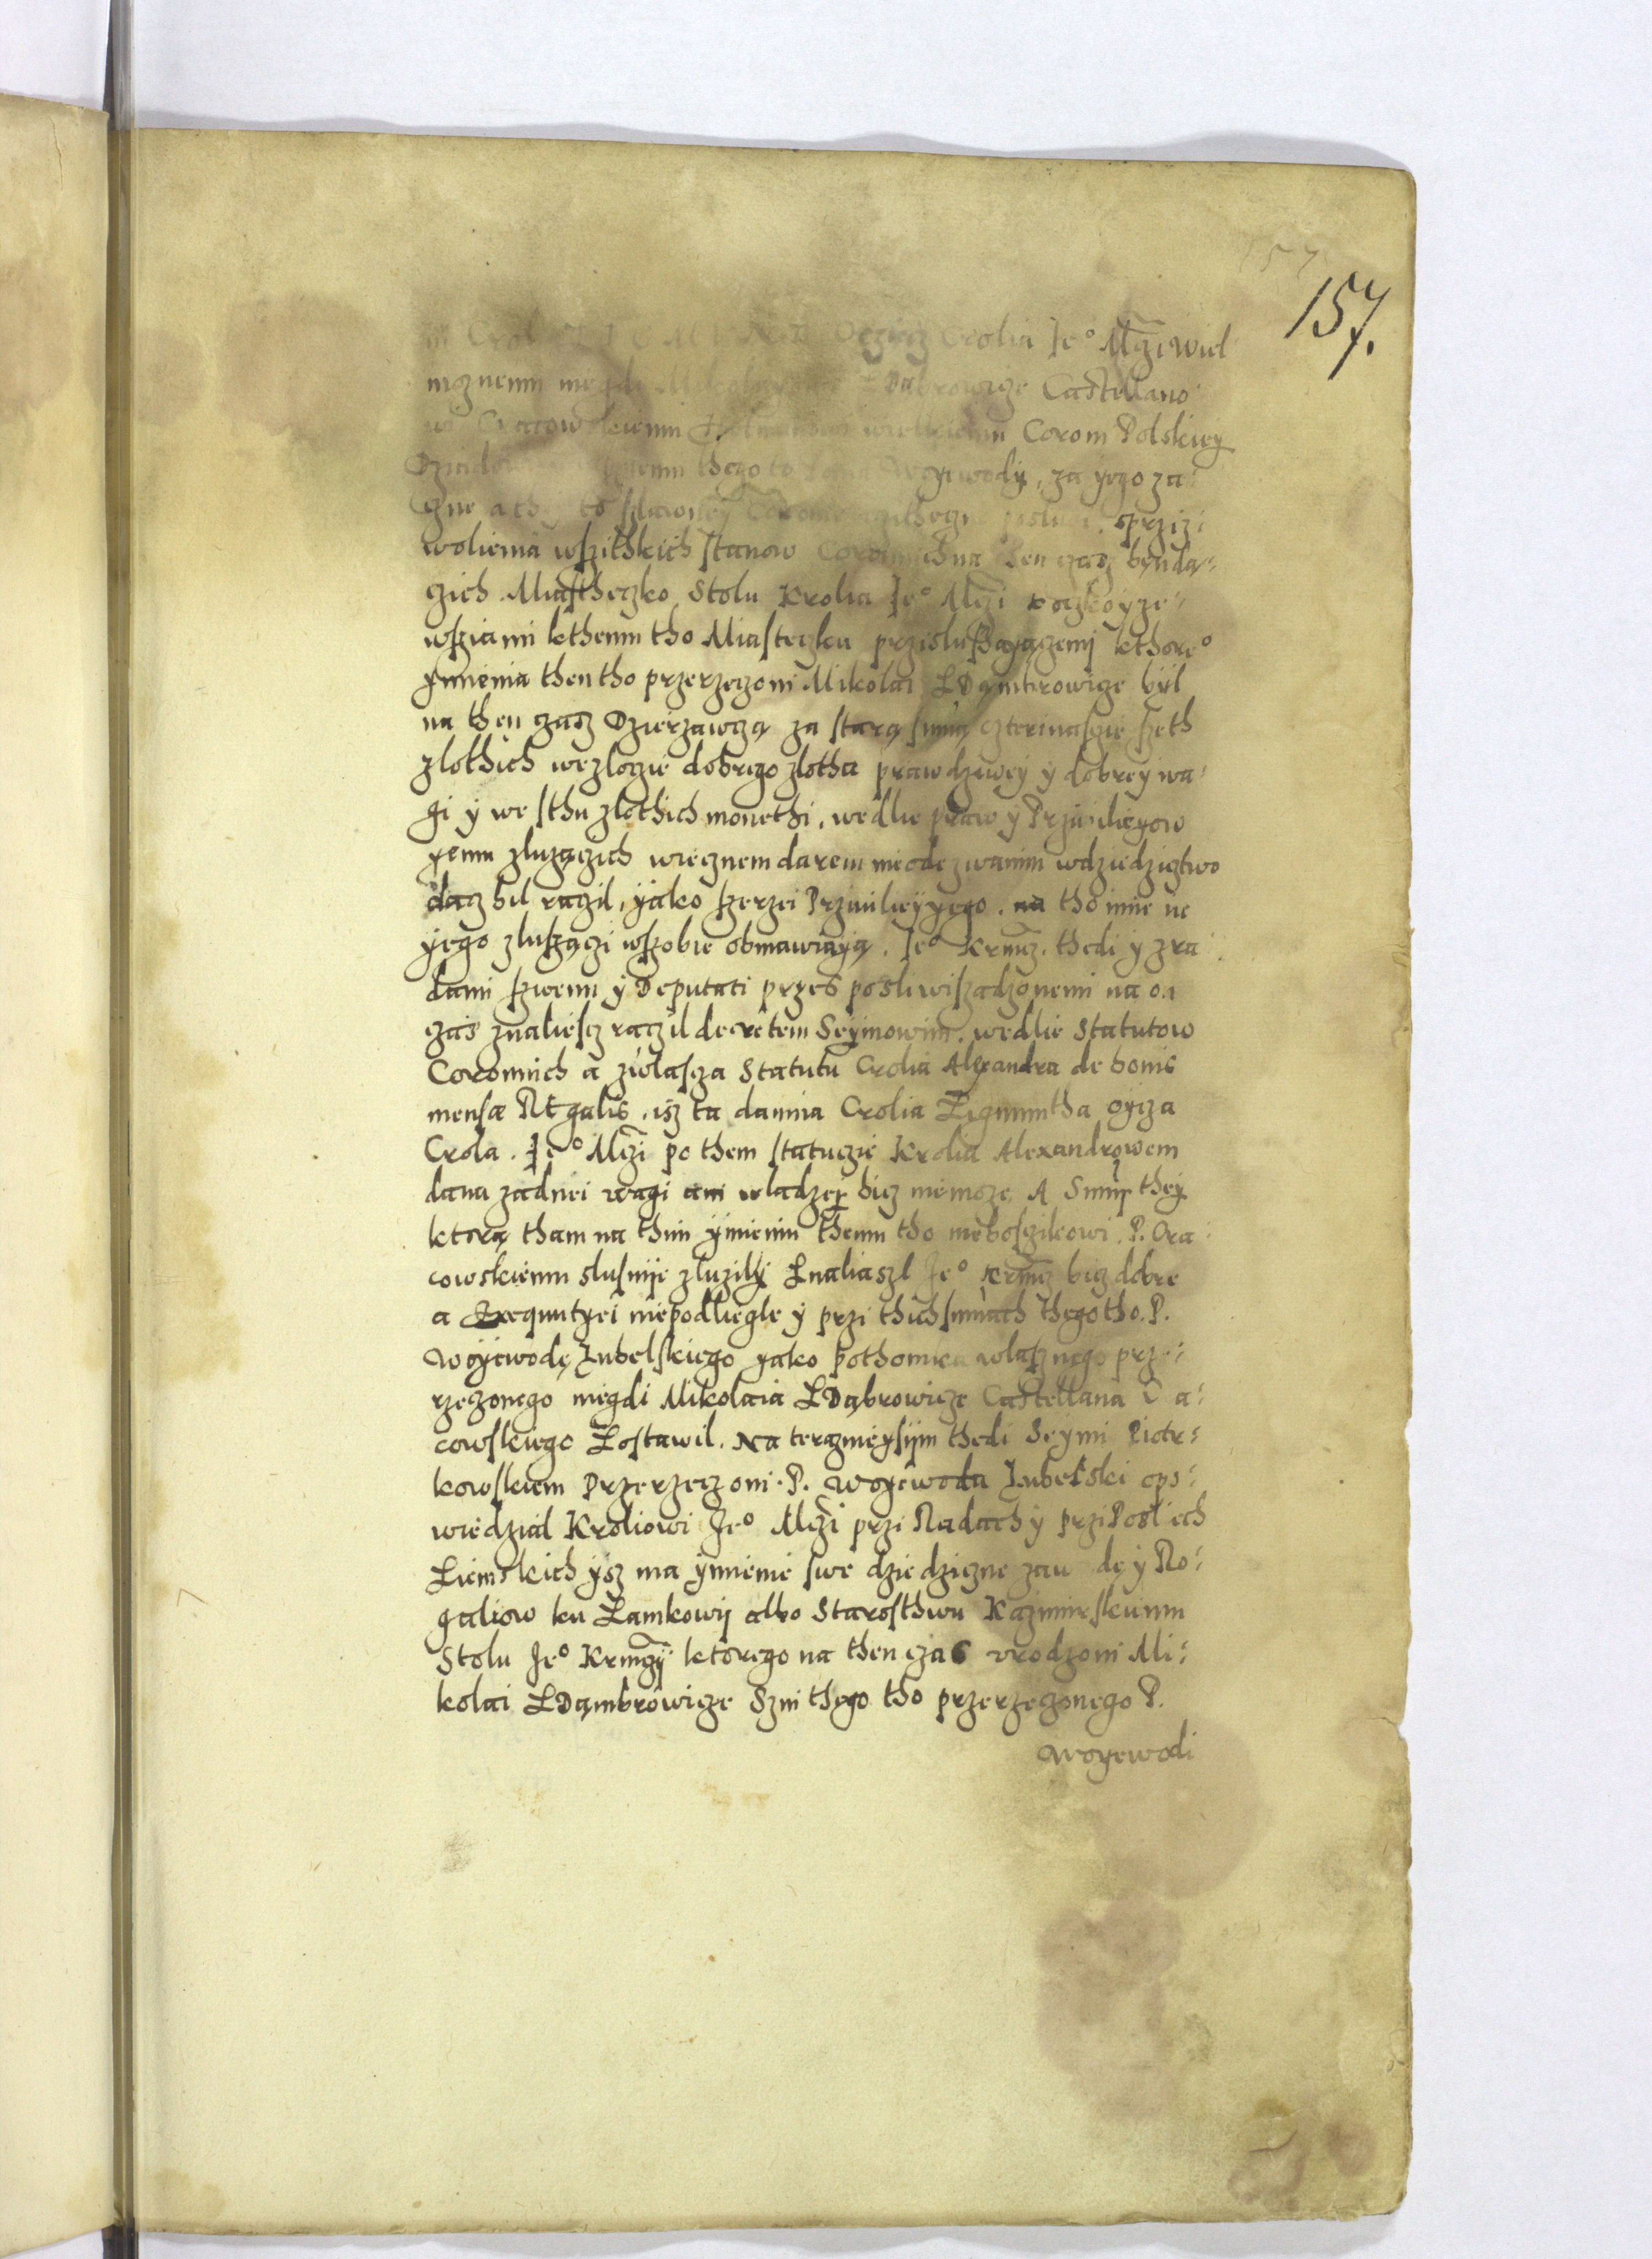 157
157.
Crolia Jeº Mczi Wiel
mcznemu niegdi Mikolayowi z Dabrowicze Castellano
wi Cracowskiemu wielkiemu Coroni Polskiey
thego to Woyewody, za yego za
czne a they to slawney Coronie poslugi, sprziz:
woliema wszithkich stanow Coronnich na then czasz bęnda=
czich Miastheczko Stolu Krolia Jeº Mczi Koczko y ze=
wsziami kthemu tho Miasteczku przislusthayączemj kthoreº
ymienia then tho przerzeczoni Mikolai Z Dąmbrowicze byl
na then czasz Dzierzawczą za starą sumą czterinascie szeth
zlothich wezloczie dobrego zlotha prawdziwey y dobrey wa=
gi y we sthu zlothich monethi, wedlie praw y Prziwilieyow
yemu zluzączich wiecznem darem nieodezwanim wdziedzictwo
dacz bil raczil, yako szerzei Prziwiliey yego. na tho imie ne
yego zluszączi wszobie obmawiayą. Jeº Krmcz. thedi y zra
dami szwemi y Deputati przes posli wiszadzonemi na on
czas znaliescz raczil decretem Seymowim, wedlie Statutow
Coronnich a zwlascza Statutu Crolia Alexandra de bonis
mensæ Regalis, isz ta danina Crolia Zigmuntha oycza
Crola. Jeº Mczi po them statuczie Krolia Alexandrowem
dana zadnei wagi ani wladzej bicz niemoze, A Sumy they
ktorą tham na thim ymieniu themu tho nieboszczikowi. P. Cra:
cowskiemu slusnije zluzilyj Znaliaszl Jeº Krmcz bicz dobre
a Exequutyei niepodliegle y przi thich sumach thego tho. P.
Woyewodę Lubelskiego yako pothomka wlasznego prze=
rzeczonego niegdi Mikolaia Z Dąbrowicze Castellana C a=
cowskiego Zostawil. Na teraznieysijm thedi Seymi Piotr=
kowskiem Przerzeczoni. P. Woyewoda Lubelski opo=
wiedzial Kroliowi Jeº Mczi przi Radach y przi Posliech
Ziemskich ysz ma ymienie swe dziedziczne zaw dę y Ro=
galiow ku Zamkowij albo Starosthwu Kazimirskiemu
Stolu Jeº Krmczij ktorego na then czas vrodzoni Mi=
kolai Z Dąmbrowicze Szin thego tho przerzeczonego P.
Woyewodi